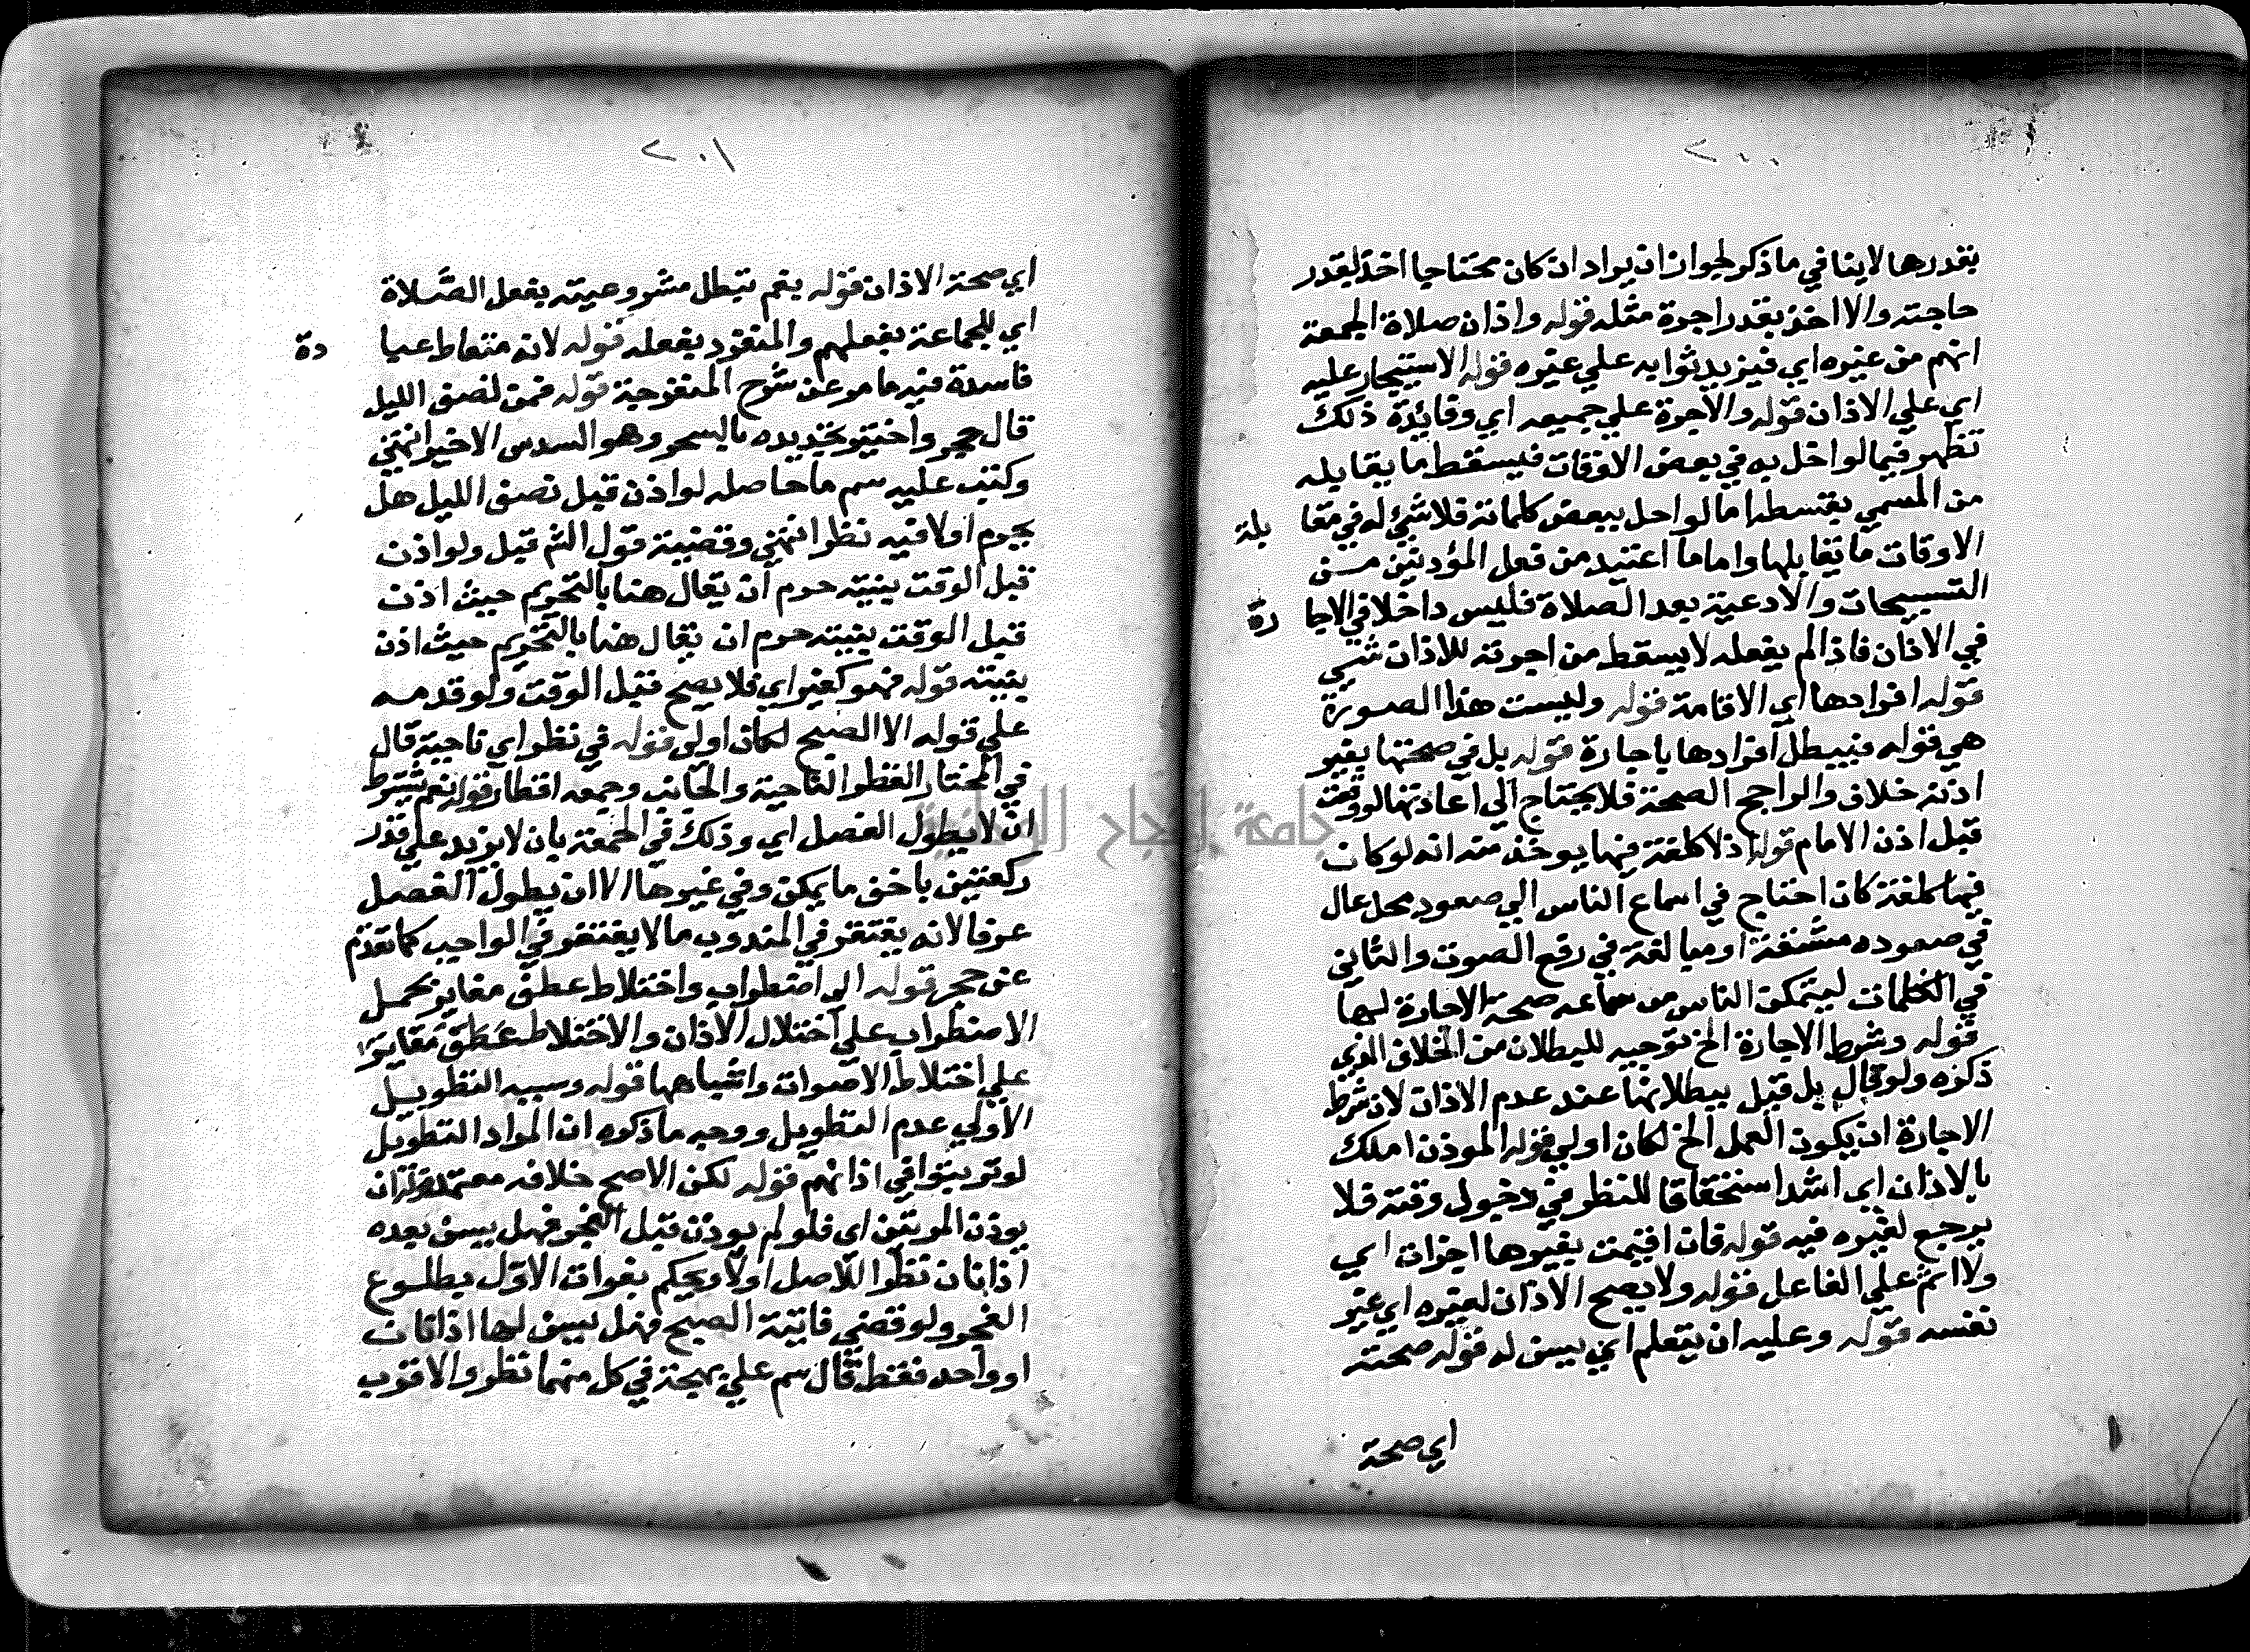 ٢٠٠
بقدرها لاينافي ماذكر لجواز ان يراد ان كان محتاجا اخذ بقدر
حاجته والا اخذ بقدر اجرة مثله قوله واذان صلاة الجمعة
اهم من غيره اي فيزيد ثوابه علي غيره قوله الاستيجار عليه
اي علي الاذان قوله والاجرة علي جميعه اي وفائدة ذلك
تظهر فيما لو اخل به في بعض الاوقات فيسقط ما يقابله
من المسمي بقسطه اما لو اخل ببعض كلماته فلا شئ له في مقابلة
الاوقات ما يقابلها واما ما اعتيد من فعل المؤذنين مـن
التسبيحات والادعية بعد الصلاة فليس داخلا في الاجارة
في الاذان فاذا لم يفعله لا يسقط من اجرته للاذان شئ
قوله افرادها اي الاقامة قوله وليست هذا الصورة
هي قوله فيبطل افرادها باجارة قوله بل في صحتها بغير
اذنه خلاف والراجح الصحة فلا يحتاج الي اعادتها لو وقعت
قبل اذن الامام قوله اذ لا كلفة فيها يوخذ منه انه لو كان
فيها كلفة كان احتاج في اسماع الناس الي صعود محل عال
في صعوده مشقة او مبالغة في رفع الصوت والتاني
في الكلمات ليتمكن الناس من سماعه صحة الاجارة لها
قوله وشرط الاجارة الخ توجيه للبطلان من الخلاف الذي
ذكره ولو قال بل قيل ببطلانها عند عدم الاذان لان شرط
الاجارة ان يكون العمل الخ لكان اولي قوله الموذن املك
بالاذان اي اشد استحقاقا للنظر في دخول وقته فلا
يرجع لغيره فيه قوله فان اقيمت بغيرها اجزات اي
ولا اثم علي الفاعل قوله ولا يصح الاذان لغيره اي غير
نفسه قوله وعليه ان يتعلم اي يسن له قوله صحته
اي صحة
٢٠١
اي صحة الاذان قوله يعم تبطل مشروعيته بفعل الصلاة
اي للجماعة بفعلهم والمنفرد بفعله قوله لانه متعاط عبادة
فاسدة فيه ما مر عن شرح المنفرجة قوله فمن نصف الليل
قال حجر واختير تحديده بالسحر وهو السدس الاخير انتهي
وكتب عليه سم ما حاصله لو اذن قبل نصف الليل هل
يحرم اولا فيه نظر انتهي وقضية قول الشم قبل ولو اذن
قبل الوقت بنيته حرم ان يقال هنا بالتحريم حيث اذن
قبل الوقت بنيته حرم ان يقال هنا بالتحريم حيث اذن
بنيته قوله فهو كغير اي فلا يصح قبل الوقت ولو قدمـه
علي قوله الا الصبح لكان اولي قوله في نظر اي ناحية قال
في المختار القطر الناحية والجانب وجمعه اقطار قوله نعم يشترط
ان لا يطول الفصل اي وذلك في الجمعة بان لا يزيد علي قدر
ركعتين باخف ما يمكن وفي غيرها الا ان يطول الفصل
عرفا لانه يغتفر في المندوب ما لا يغتفر في الواجب كما تقدم
عن حجر قوله الي اضطراب واختلاط عطف مغاير بحمـل
الاضطراب علي اختلال الاذان والاختلاط عطف مغاير
علي اختلاط الاصوات واشباهها قوله وسببه التطويـل
الاولي عدم التطويل ووجه ما ذكره ان المراد التطويل
لو ترتبوا في اذانهم قوله لكن الاصح خلافه معتمد قوله ان
يوذن المرتين اي فلو لم يوذن قبل الفجر فهل يسن بعده
اذانان نظرا للاصل اولا ويحكم بفوات الاول بطلـوع
الفجر ولو قضي فائتة الصبح فهل يسن لها اذانان
او واحد فقط قال سم علي بهجة في كل منهما نظر والاقرب
جامعة النجاح الوطنية